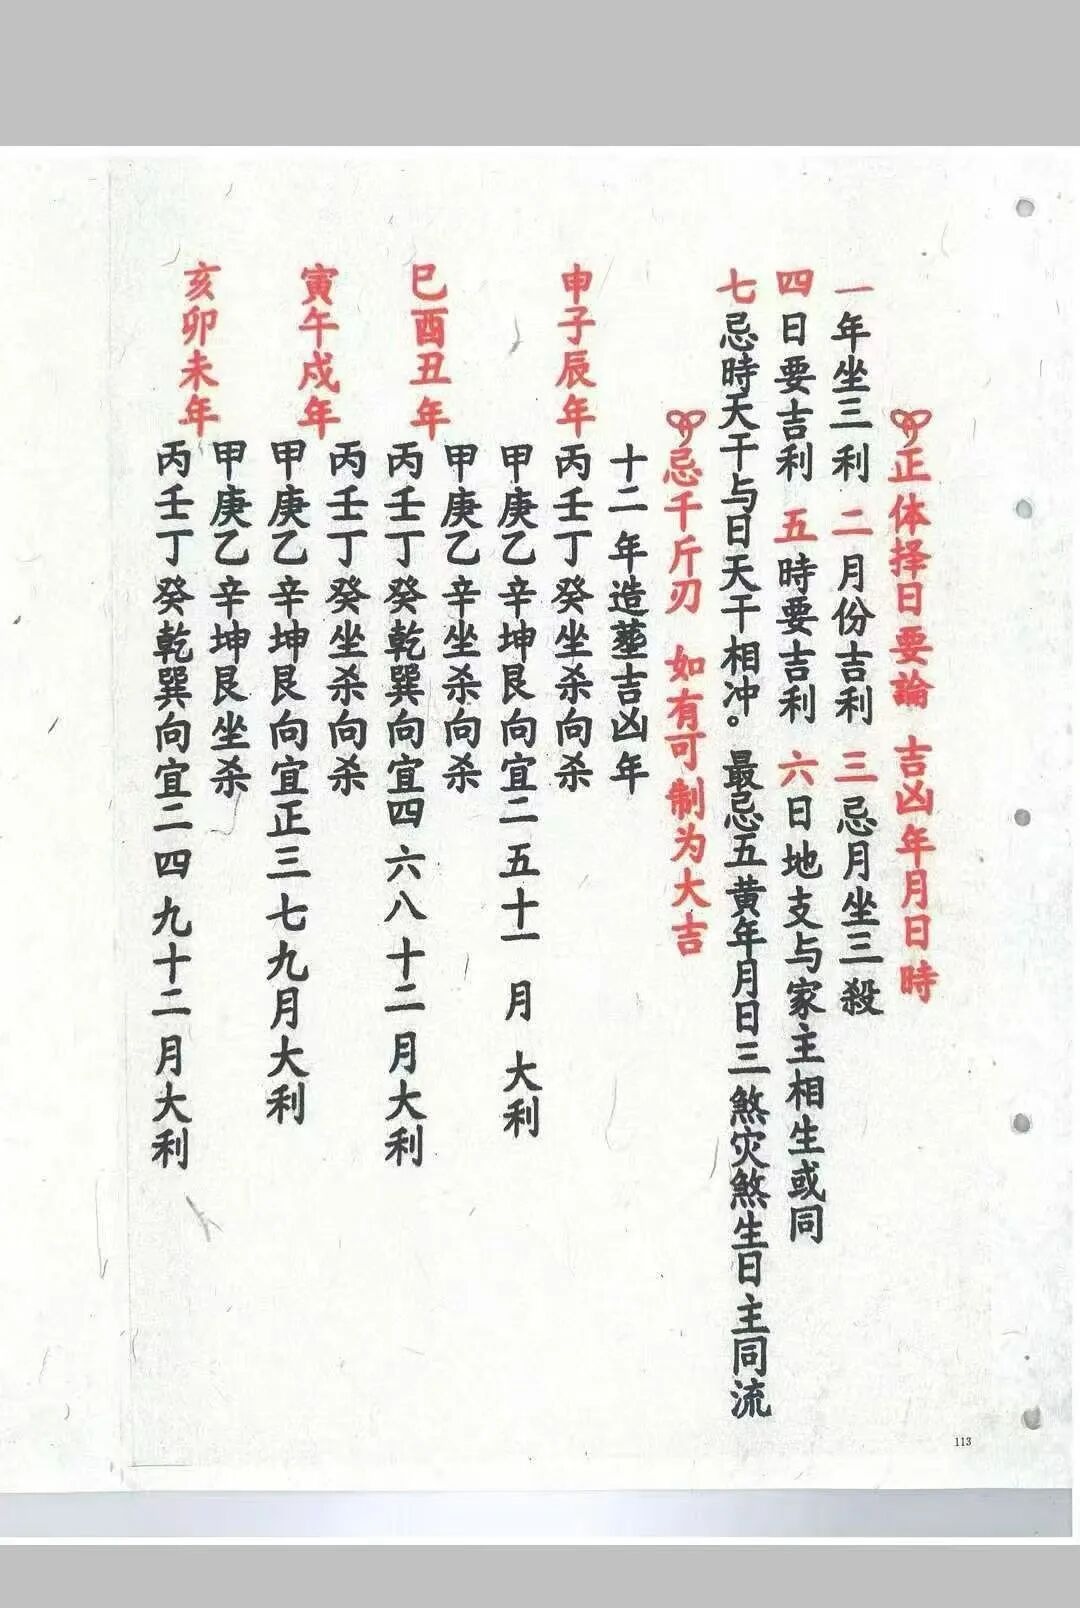 正体择日要論 吉凶年月日時
一年坐三利 二月份吉利 三忌月坐三殺
四日要吉利 五時要吉利 六日地支与家主相生或同
七忌時天干与日天干相冲。最忌五黄年月日三煞灾煞生日主同流
忌千斤刃 如有可制为大吉
十二年造葬吉凶年
申子辰年
丙壬丁癸坐杀向杀
甲庚乙辛坤艮向宜二五十一月大利
巳酉丑年
甲庚乙辛坐杀向杀
丙壬丁癸乾巽向宜四六八十二月大利
寅午戍年
丙壬丁癸坐杀向杀
甲庚乙辛坤艮向宜正三七九月大利
亥卯未年
甲庚乙辛坤艮坐杀
丙壬丁癸乾巽向宜二四九十二月大利
113